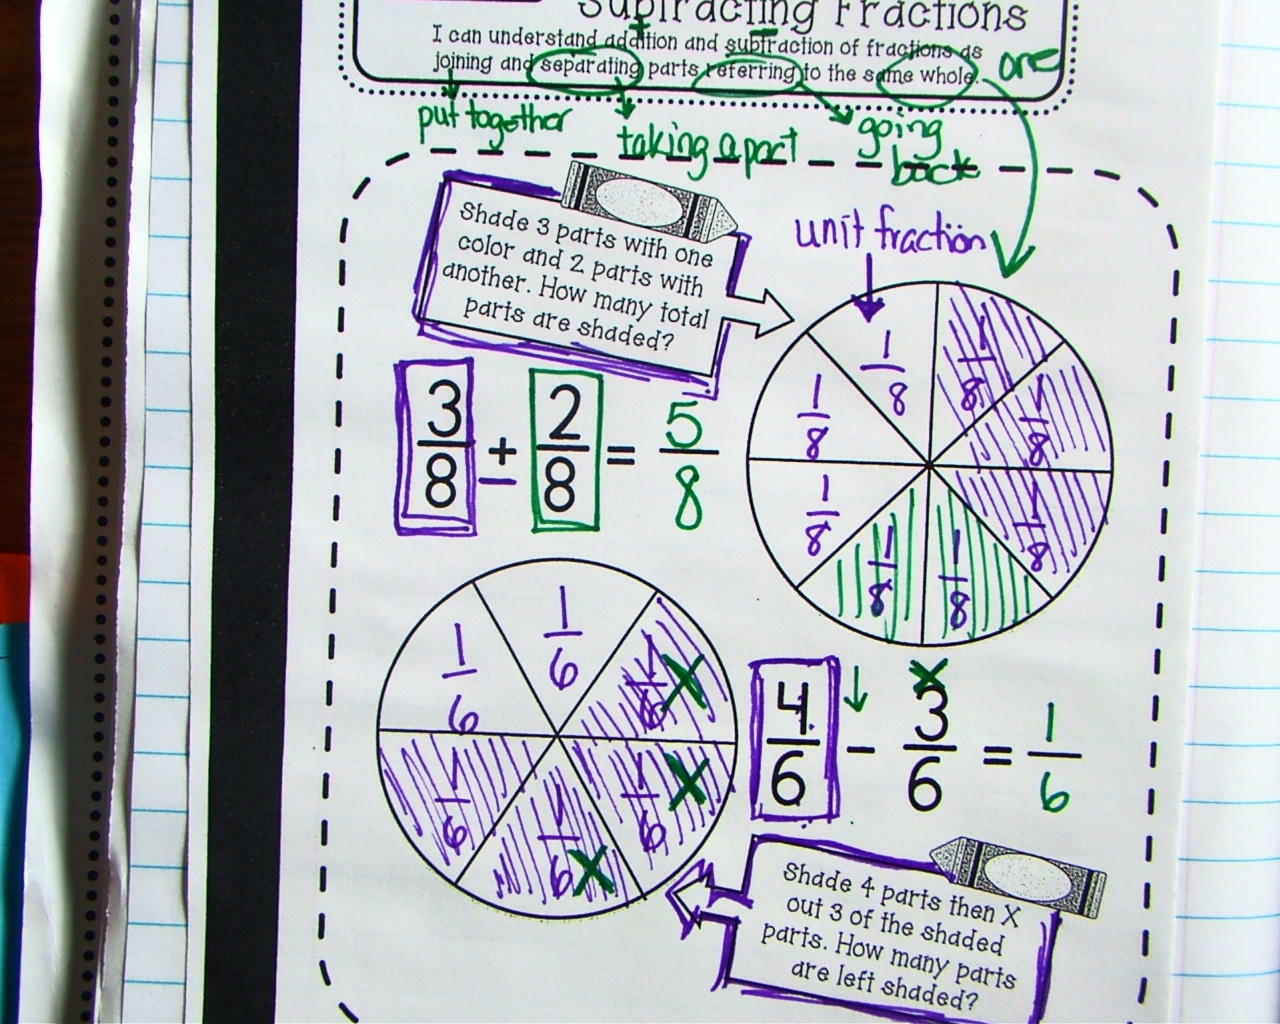 Subtracting Fractions
I can understand addition and subtraction of fractions as
joining and separating parts referring to the same whole.
one
put together
taking apart
going
back
Shade 3 parts with one
color and 2 parts with
another. How many total
parts are shaded?
unit fraction
3/8 + 2/8 = 5/8
1/8
1/8
1/8
1/8
1/8
1/8
1/8
1/8
1/6
1/6
1/6 X
1/6
1/6 X
1/6 X
4/6 - 3/6 = 1/6
X
Shade 4 parts then X
out 3 of the shaded
parts. How many parts
are left shaded?